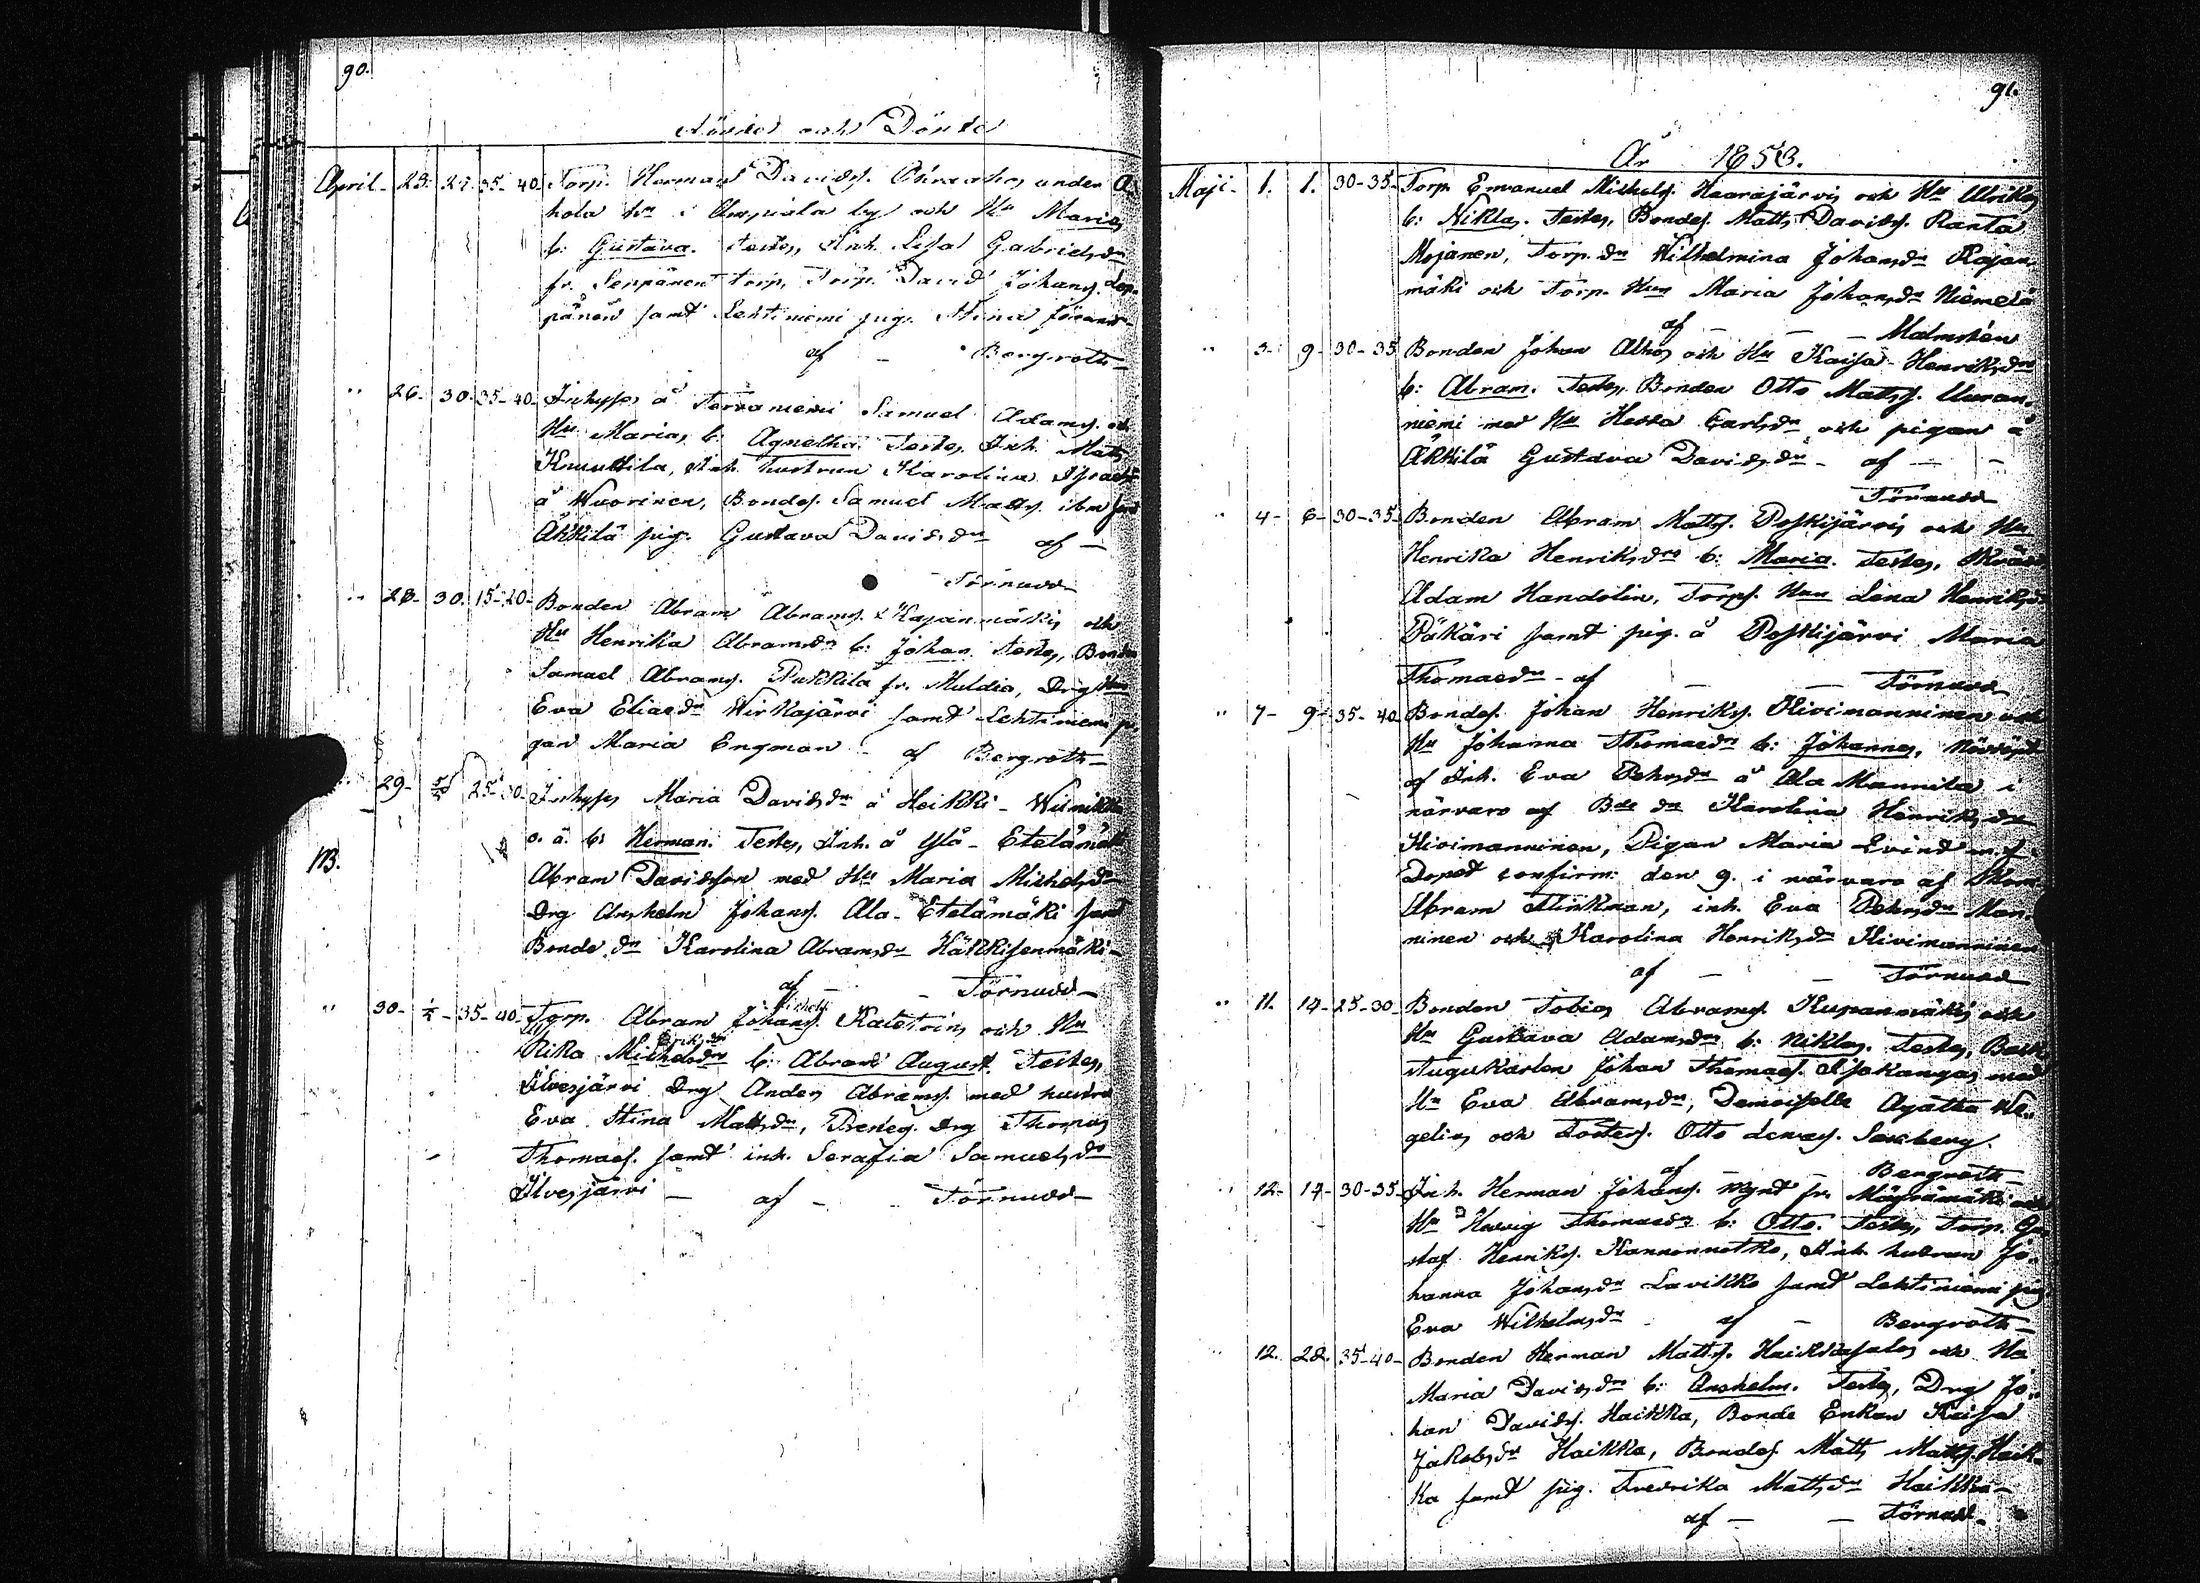 90.
Födde och Döpte
April. 23. 27. 35-40. Torp. Herman Davids. under A
hola hn i by och Hu Maria
b: Gustava. Testes, Inh. Lisa Gabrielsdr
fr. Seppänen torp, Torp. David Johans. Lep
pänen samt Lehtiniemi pig. Stina
af - Bergroth
" 26. 30. 35-40. Inhyses å Tervaniemi Samuel Adams. och
Hu Maria, b: Agnetha. Testes, Inh. Matts
Knuuttila, Inh. hustrun Karolina
å Wuorinen, Bondes. Samuel Matts. ibm samt
Äkkilä pig. Gustava Davidsdr af -
Törnudd
" 28. 30. 15-20. Bonden Abram Abrams. Kajanmäki och
Hu Henrika Abramsdr b: Johan. Testes, Bonden
Samuel Abrams. Pukkila fr. Muldia, Drg Hun
Eva Eliaedr Wirkajärvi samt Lehtiniemi pi
gan Maria Engman - af Bergroth
29. 25-30. Inhyses Maria Davidsdr å Heikki-
o. ä. b: Herman. Testes, Inh. å Ylä-Etelämäki
Abram Davidsson med Hu Maria Michelsdr
Drg Anshelm Johans. Ala-Etelämäki samt
Bonde dr Karolina Abramsdr Häkkisenmäki
af - Törnudd
" 30. 35-40. Torp. Abram Johans. och Hu
Rika Michelsdr b: Abram August. Testes,
Ilvesjärvi Drg Anders Abrams. med hustru
Eva Stina Mattsdr, Drg Thomas
Thomaes. samt inh. Serafia Samuelsdr
Ilvesjärvi - af - Törnudd
91.
År 1853.
Maji. 1. 1. 30-35. Torp. Emanuel Michels. Haarajärvi och Hu Ulrika
b: Niklas. Testes, Bondes. Matts Davids. Ranta
Mojanen, Torp. dr Wilhelmina Johansdr Rajan
mäki och Torp. Hun Maria Johansdr Niemelä
af - Malmstén
" 3. 9. 30-35 Bonden Johan Alho och Hu Kaisa Henriksdr
b: Abram. Testes, Bonden Otto Matts. Uuran
niemi med Hu Hedda Carlsdr och pigan å
Äkkilä Gustava Davidsdr - af -
Törnudd
" 4. 6. 30-35. Bonden Abram Matts. Poskijärvi och Hu
Henrika Henriksdr b: Maria. Testes,
Adam Handolin, Torps. Hun Lena Henriksdr
Päkäri samt pig. å Poskijärvi Maria
Thomaedr - af - Törnudd
" 7. 9. 35-40. Bondes. Johan Henriks. Kivimanninen och
Hu Johanna Thomaedr b: Johannes, nöddöpt
af Inh. Eva Pehrsdr å Ala Mannila i
närvaro af Bde dr Karolina Henriksdr
Kivimanninen, Pigan Maria
Dopet confirm: den 9. i närvaro af
Abram Flinkman, inh. Eva Pehrsdr Man
ninen och Karolina Henriksdr Kivimanninen
af - Törnudd
" 11. 14. 25-30. Bonden Tobias Abrams. Kupanmäki och
Hu Gustava Adamsdr b: Niklas. Testes,
Johan Thomaes. Isokangas med
Hu Eva Abramsdr, Demoiselle Agatha We
gelius och Otto Saxberg.
af - Bergroth
" 12. 14. 30-35. Inh. Herman Johans. Mynt fr. Mäyrämäki och
Hu Hedvig Thomaedr b: Otto. Testes, Torp. Gu
staf Henriks. Kannonnotko, Inh. hustrun Jo
hanna Johansdr Lavikko samt Lehtiniemi pig
Eva Wilhelmsdr - af - Bergroth
" 12. 22. 35-40. Bonden Herman Matts. Haikkasalo och Hu
Maria Davidsdr b: Anshelm. Testes, Drg Jo
han Davids. Haikka, Bonde Enkan Kaisa
Jakobsdr Haikka, Bondes. Matts Matts. Haik
ka samt pig. Fredrika Mattsdr Haikka
af - Törnudd